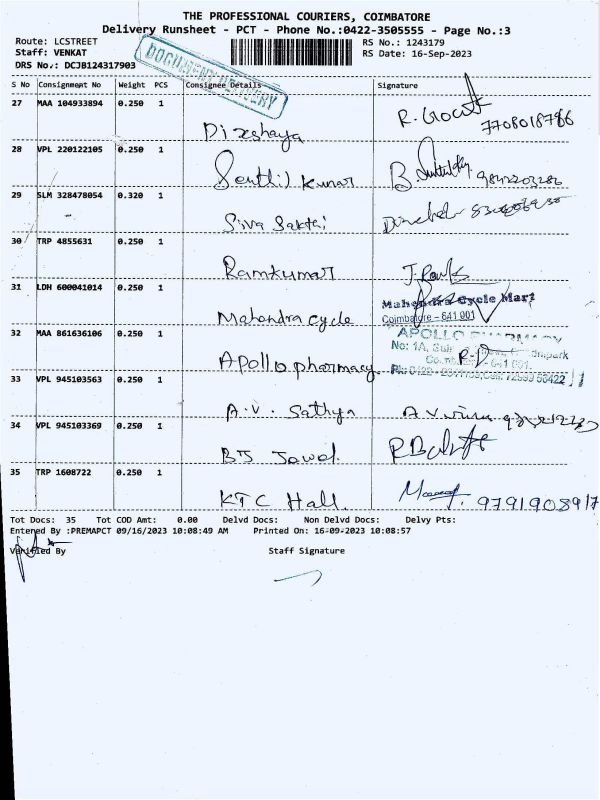 THE PROFESSIONAL COURIERS, COIMBATORE
Delivery Runsheet - PCT - Phone No.:0422-3505555 - Page No.:3
Route: LCSTREET
RS No.: 1243179
Staff: VENKAT
RS Date: 16-Sep-2023
DRS No.: DCJB124317903
DOCUMENT DELIVERY
S No Consignment No Weight PCS Consignee Details Signature
27 MAA 104933894 0.250 1
7708018786
28 VPL 220122105 0.250 1
Senthil kumar
29 SLM 328478054 0.320 1
Siva Sakthi
30 TRP 4855631 0.250 1
Ramkumar
31 LDH 600041014 0.250 1
Mahendra Cycle Mart
Mahendra cycle Coimbatore - 641 001
32 MAA 861636106 0.250 1
APOLLO PHARMACY
No: 1A,
Apollo pharmacy
33 VPL 945103563 0.250 1
A.V. Sathya
34 VPL 945103369 0.250 1
BJ Jewel.
35 TRP 1608722 0.250 1
KTC Hall. 9791908917
Tot Docs: 35 Tot COD Amt: 0.00 Delvd Docs: Non Delvd Docs: Delvy Pts:
Entered By :PREMAPCT 09/16/2023 10:08:49 AM Printed On: 16-09-2023 10:08:57
Verified By Staff Signature